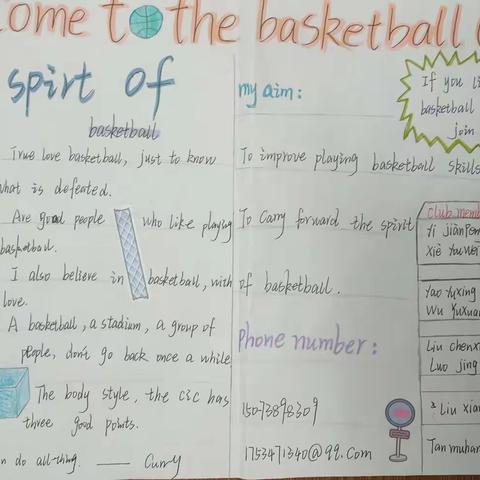 ome to the basketball
spirt of
basketball
True love basketball, just to know
what is defeated.
Are good people who like playing
basketball.
I also believe in basketball, with
love.
A basketball, a stadium, a group of
people, don't go back once a while
The body style, the cic has
three good points.
n do all-thing. —— Curry
my aim:
To improve playing basketball skills
To Carry forward the spirit
of basketball.
Phone number:
150-73898309
1753471340@qq.Com
If you li
basketball
join
club memb
Yi jianfen
Xiè Youwei
Yao Yuxing
Wu Yuxuan
Liu chenx
Luo jing
Liu xian
Tan muhan